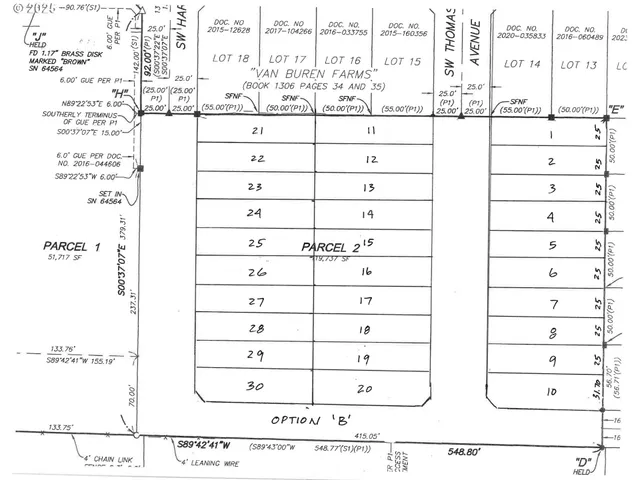 -90.76'(S1)
"J"
HELD
FD 1.17" BRASS DISK
MARKED "BROWN"
SN 64564
6.00' GUE PER P1
6.00' GUE
PER P1
142.00'(S1)
92.00'(P1)
(S00°37'22"E
S00°37'07"E
25.0'
(P1)
SW HAR
25.0'
(P1)
DOC. NO
2015-12628
DOC. NO.
2017-104266
DOC. NO.
2016-033755
DOC. NO.
2015-160356
SW THOMAS
AVENUE
DOC. NO.
2020-035833
DOC. NO.
2016-060489
LOT 18
LOT 17
LOT 16
LOT 15
LOT 14
LOT 13
"VAN BUREN FARMS"
(BOOK 1306 PAGES 34 AND 35)
25.0'
(P1)
25.0'
(P1)
"H"
N89°22'53"E 6.00'
SOUTHERLY TERMINUS
OF GUE PER P1
S00°37'07"E 15.00'
25.00'
25.00'
SFNF
SFNF
SFNF
SFNF
(55.00'(P1))
(50.00'(P1))
(50.00'(P1))
(55.00'(P1))
25.00'
25.00'
(55.00'(P1))
(50.00'(P1))
"E"
6.0' GUE PER DOC.
NO. 2016-044606
S89°22'53"W 6.00'
SET IN
SN 64564
PARCEL 1
51,717 SF
379.31'
S00°37'07"E
237.31'
133.76'
S89°42'41"W 155.19'
70.00'
133.75'
PARCEL 2
119,737 SF
21 11 1 25
22 12 2 25
23 13 3 25
24 14 4 25
25 15 5 25
26 16 6 25
27 17 7 25
28 18 8 25
29 19 9 25
30 20 10 51.70
50.00'(P1)
50.00'(P1)
50.00'(P1)
50.00'(P1)
56.70'
(56.71'(P1))
16
16
OPTION 'B'
S89°42'41"W
(S89°43'00"W
415.05'
548.77'(S1)(P1))
548.80'
4' CHAIN LINK
4' LEANING WIRE
"D"
HELD